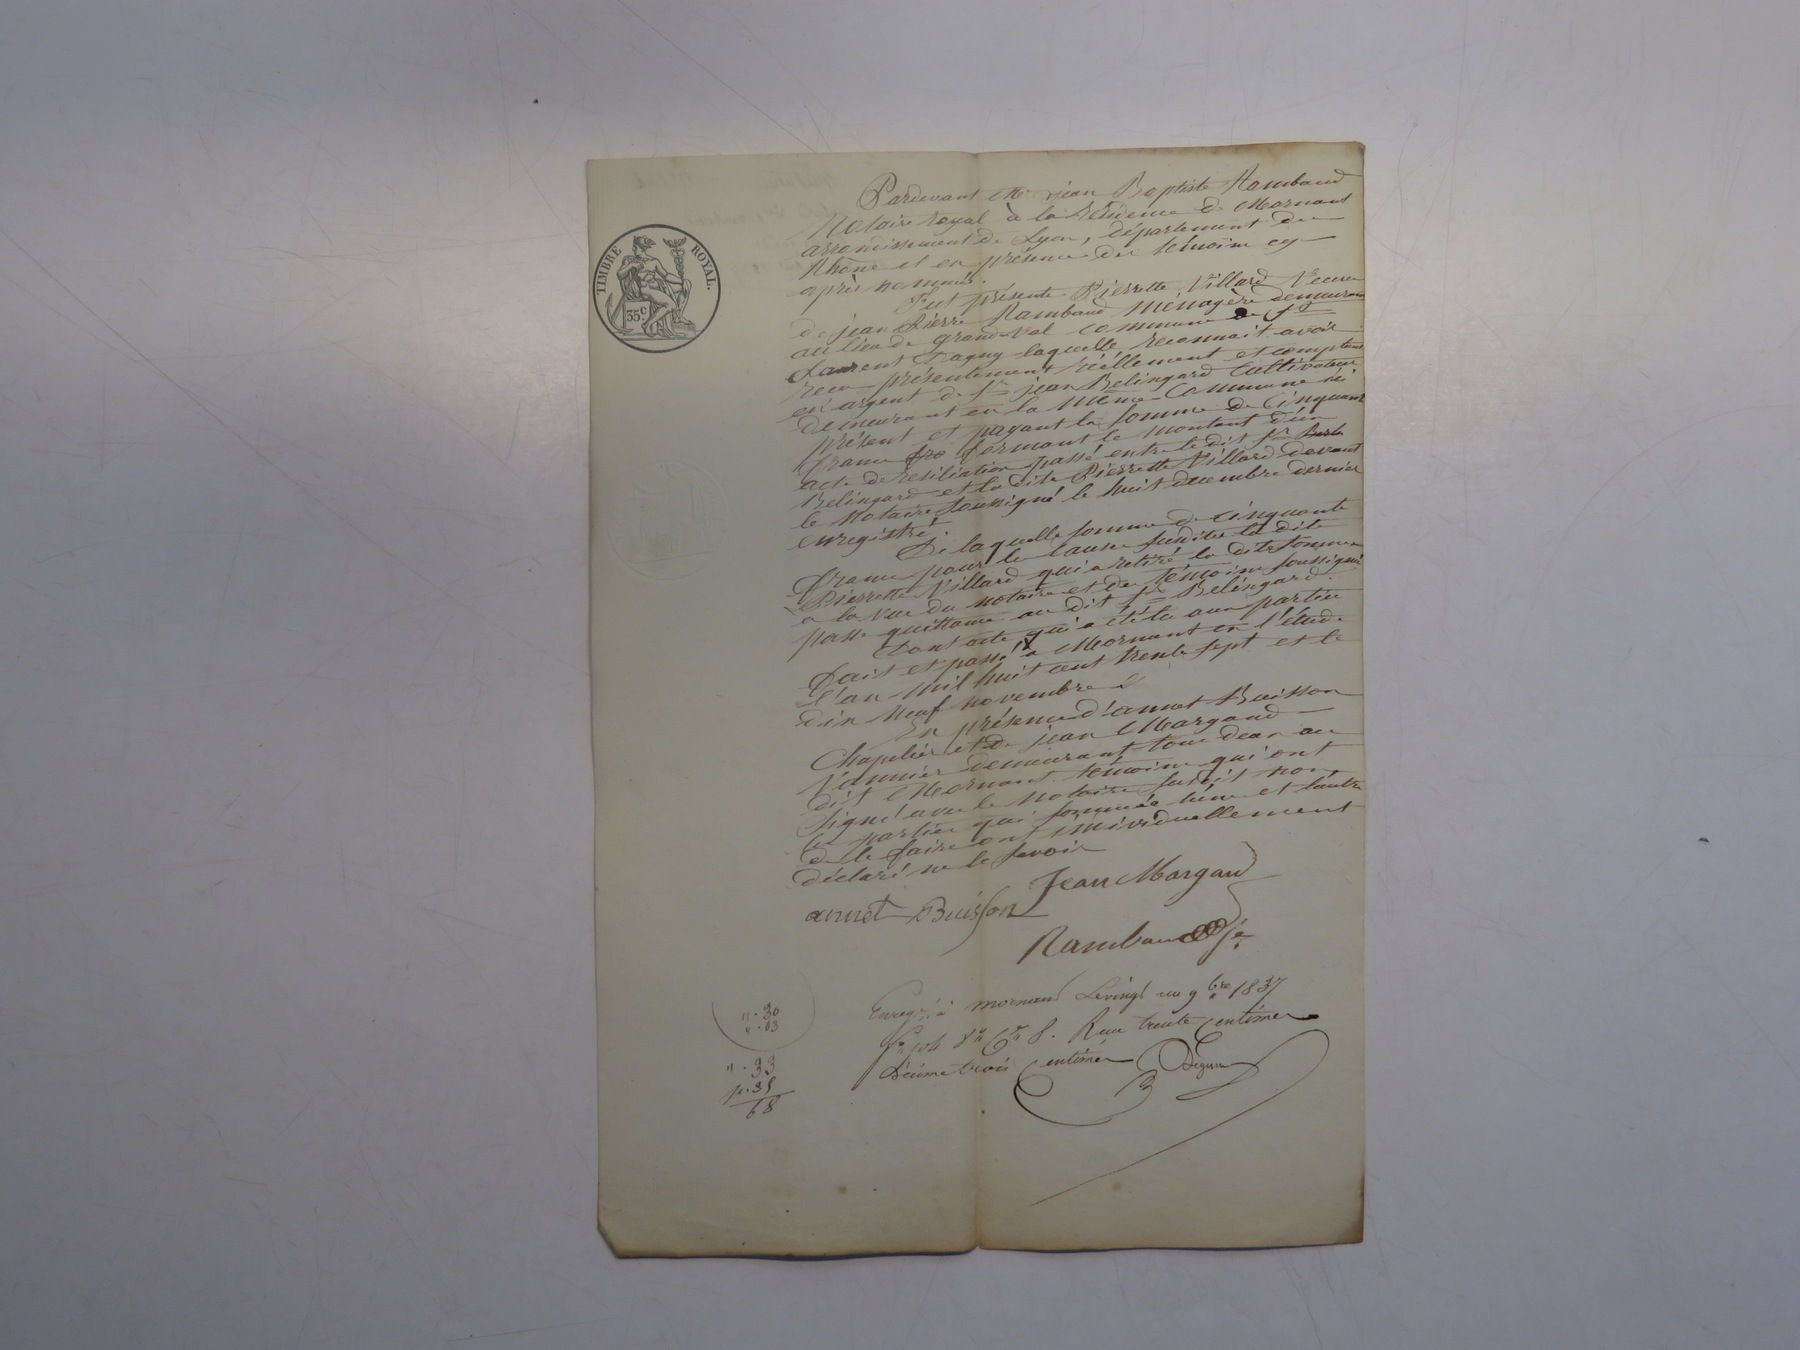 TIMBRE ROYAL.
35 c
Pardevant Me jean Baptiste Rambaud
Notaire royal à la Résidence de Mornant
arrondissement de Lyon, département du
Rhône et en présence des témoins cy
après nommés.
Fut présente Pierrette Villard Veuve
de jean Pierre Rambaud Ménagère demeurant
au lieu de grand-Val commune de St
Laurent Dagny laquelle reconnait avoir
reçu présentement réellement et comptant
en argent de Sr jean Belingard Cultivateur
demeurant en la même Commune ici
présent et payant la somme de Cinquante
francs formant le montant d'un
acte de résiliation passé entre le dit Sr
Belingard et la dite Pierrette Villard devant
le Notaire soussigné le huit decembre dernier
enregistré.
De laquelle somme de cinquante
francs pour les causes susdites la dite
Pierrette Villard qui a retiré la dite somme
a la vue du notaire et des témoins soussignés
passe quittance au dit Sr Belingard.
Dont acte qui a été lu aux parties
Fait et passé a Mornant en l'étude
l'an mil huit cent trente sept et le
dix neuf novembre
En présence d'annet Buisson
Chapelier et de jean Margaud
Vannier demeurant tous deux au
dit Mornant témoins qui ont
signé avec le notaire susdit non
les parties qui sommées l'une et l'autre
de le faire ont individuellement
déclaré ne le savoir
Jean Margaud
annet Buisson
Rambaud
Enregé à mornant Le vingt un 9bre 1837
fo 104 Ro Cse 8. Reçu trente Centimes
Décime trois Centimes
" . 30
" . 03
" . 33
p. 35
68